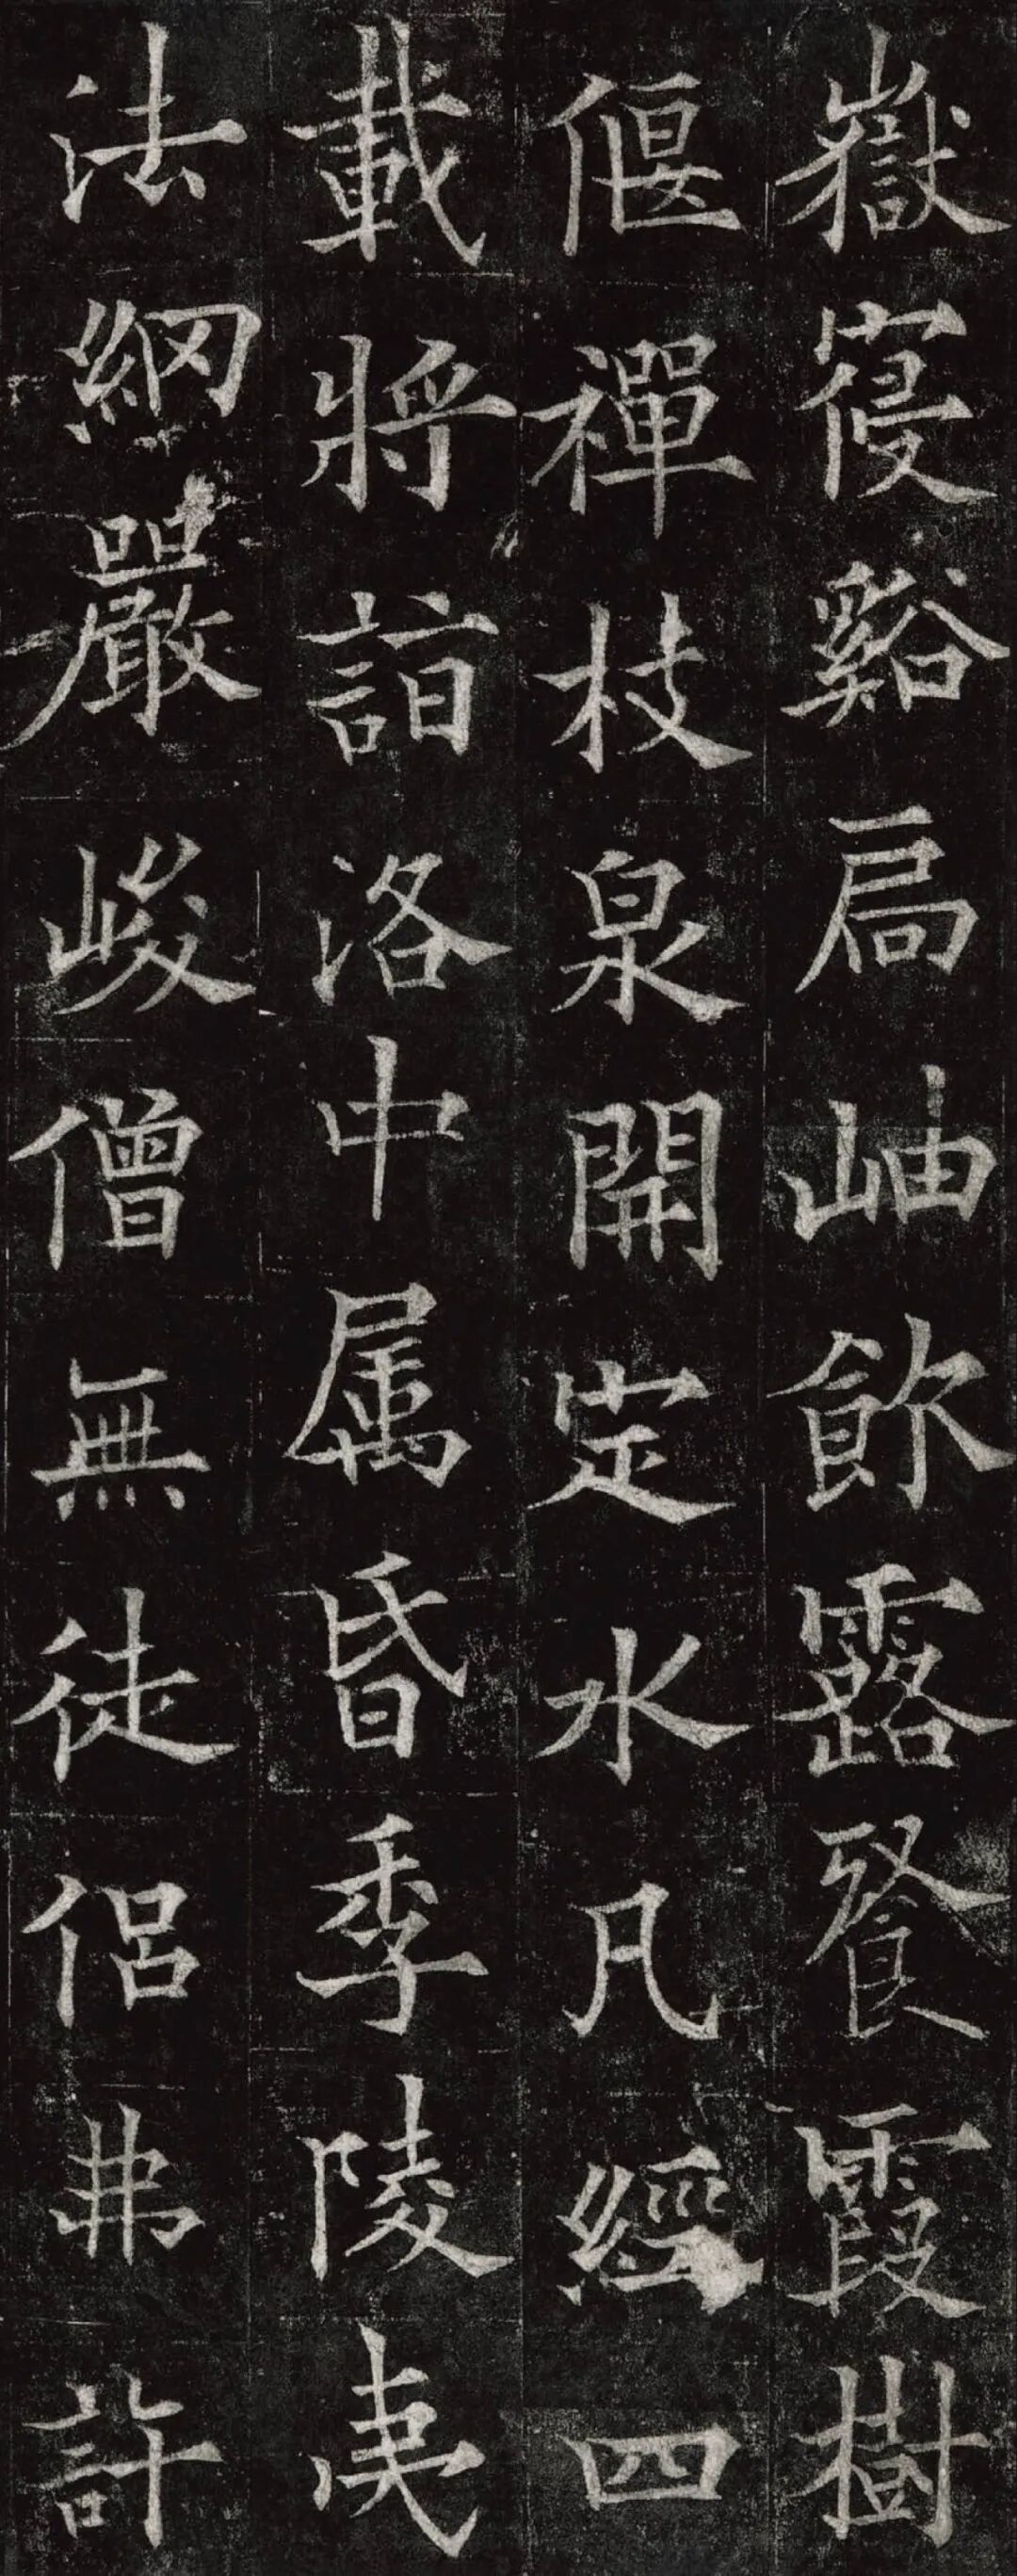 嶽寑谿扃岫飲露飡霞樹
偃禪枝泉開定水凡經四
載將詣洛中属昏季陵夷
法綱嚴峻僧無徒侶弗許